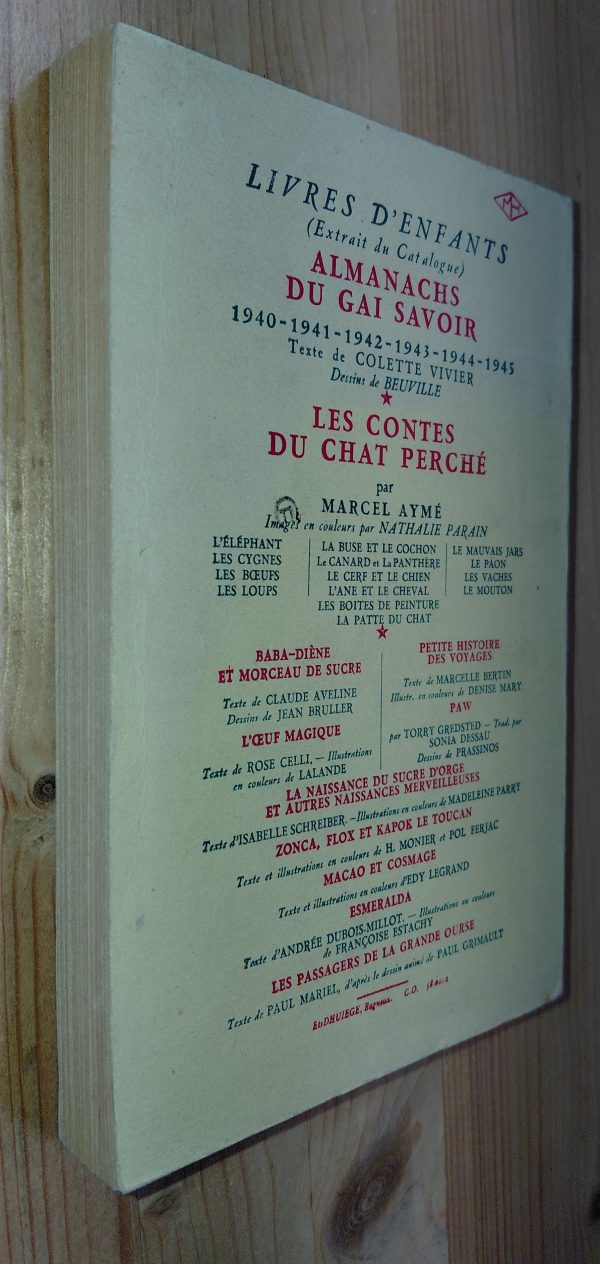 LIVRES D'ENFANTS
(Extrait du Catalogue)
ALMANACHS
DU GAI SAVOIR
1940-1941-1942-1943-1944-1945
Texte de COLETTE VIVIER
Dessins de BEUVILLE
LES CONTES
DU CHAT PERCHÉ
par
MARCEL AYMÉ
Images en couleurs par NATHALIE PARAIN
L'ÉLÉPHANT
LES CYGNES
LES BŒUFS
LES LOUPS
LA BUSE ET LE COCHON
Le CANARD et La PANTHÈRE
LE CERF ET LE CHIEN
L'ANE ET LE CHEVAL
LES BOITES DE PEINTURE
LA PATTE DU CHAT
LE MAUVAIS JARS
LE PAON
LES VACHES
LE MOUTON
BABA-DIÈNE
ET MORCEAU DE SUCRE
Texte de CLAUDE AVELINE
Dessins de JEAN BRULLER
L'ŒUF MAGIQUE
Texte de ROSE CELLI. — Illustrations
en couleurs de LALANDE
PETITE HISTOIRE
DES VOYAGES
Texte de MARCELLE BERTIN
Illustr. en couleurs de DENISE MARY
PAW
par TORRY GREDSTED — Trad. par
SONIA DESSAU
Dessins de PRASSINOS
LA NAISSANCE DU SUCRE D'ORGE
ET AUTRES NAISSANCES MERVEILLEUSES
Texte d'ISABELLE SCHREIBER. — Illustrations en couleurs de MADELEINE PARRY
ZONCA, FLOX ET KAPOK LE TOUCAN
Texte et illustrations en couleurs de H. MONIER et POL FERJAC
MACAO ET COSMAGE
Texte et illustrations en couleurs d'EDY LEGRAND
ESMERALDA
Texte d'ANDRÉE DUBOIS-MILLOT. — Illustrations en couleurs
de FRANÇOISE ESTACHY
LES PASSAGERS DE LA GRANDE OURSE
Texte de PAUL MARIEL, d'après le dessin animé de PAUL GRIMAULT
Ets DHUIEGE, Bagneux. C.O.